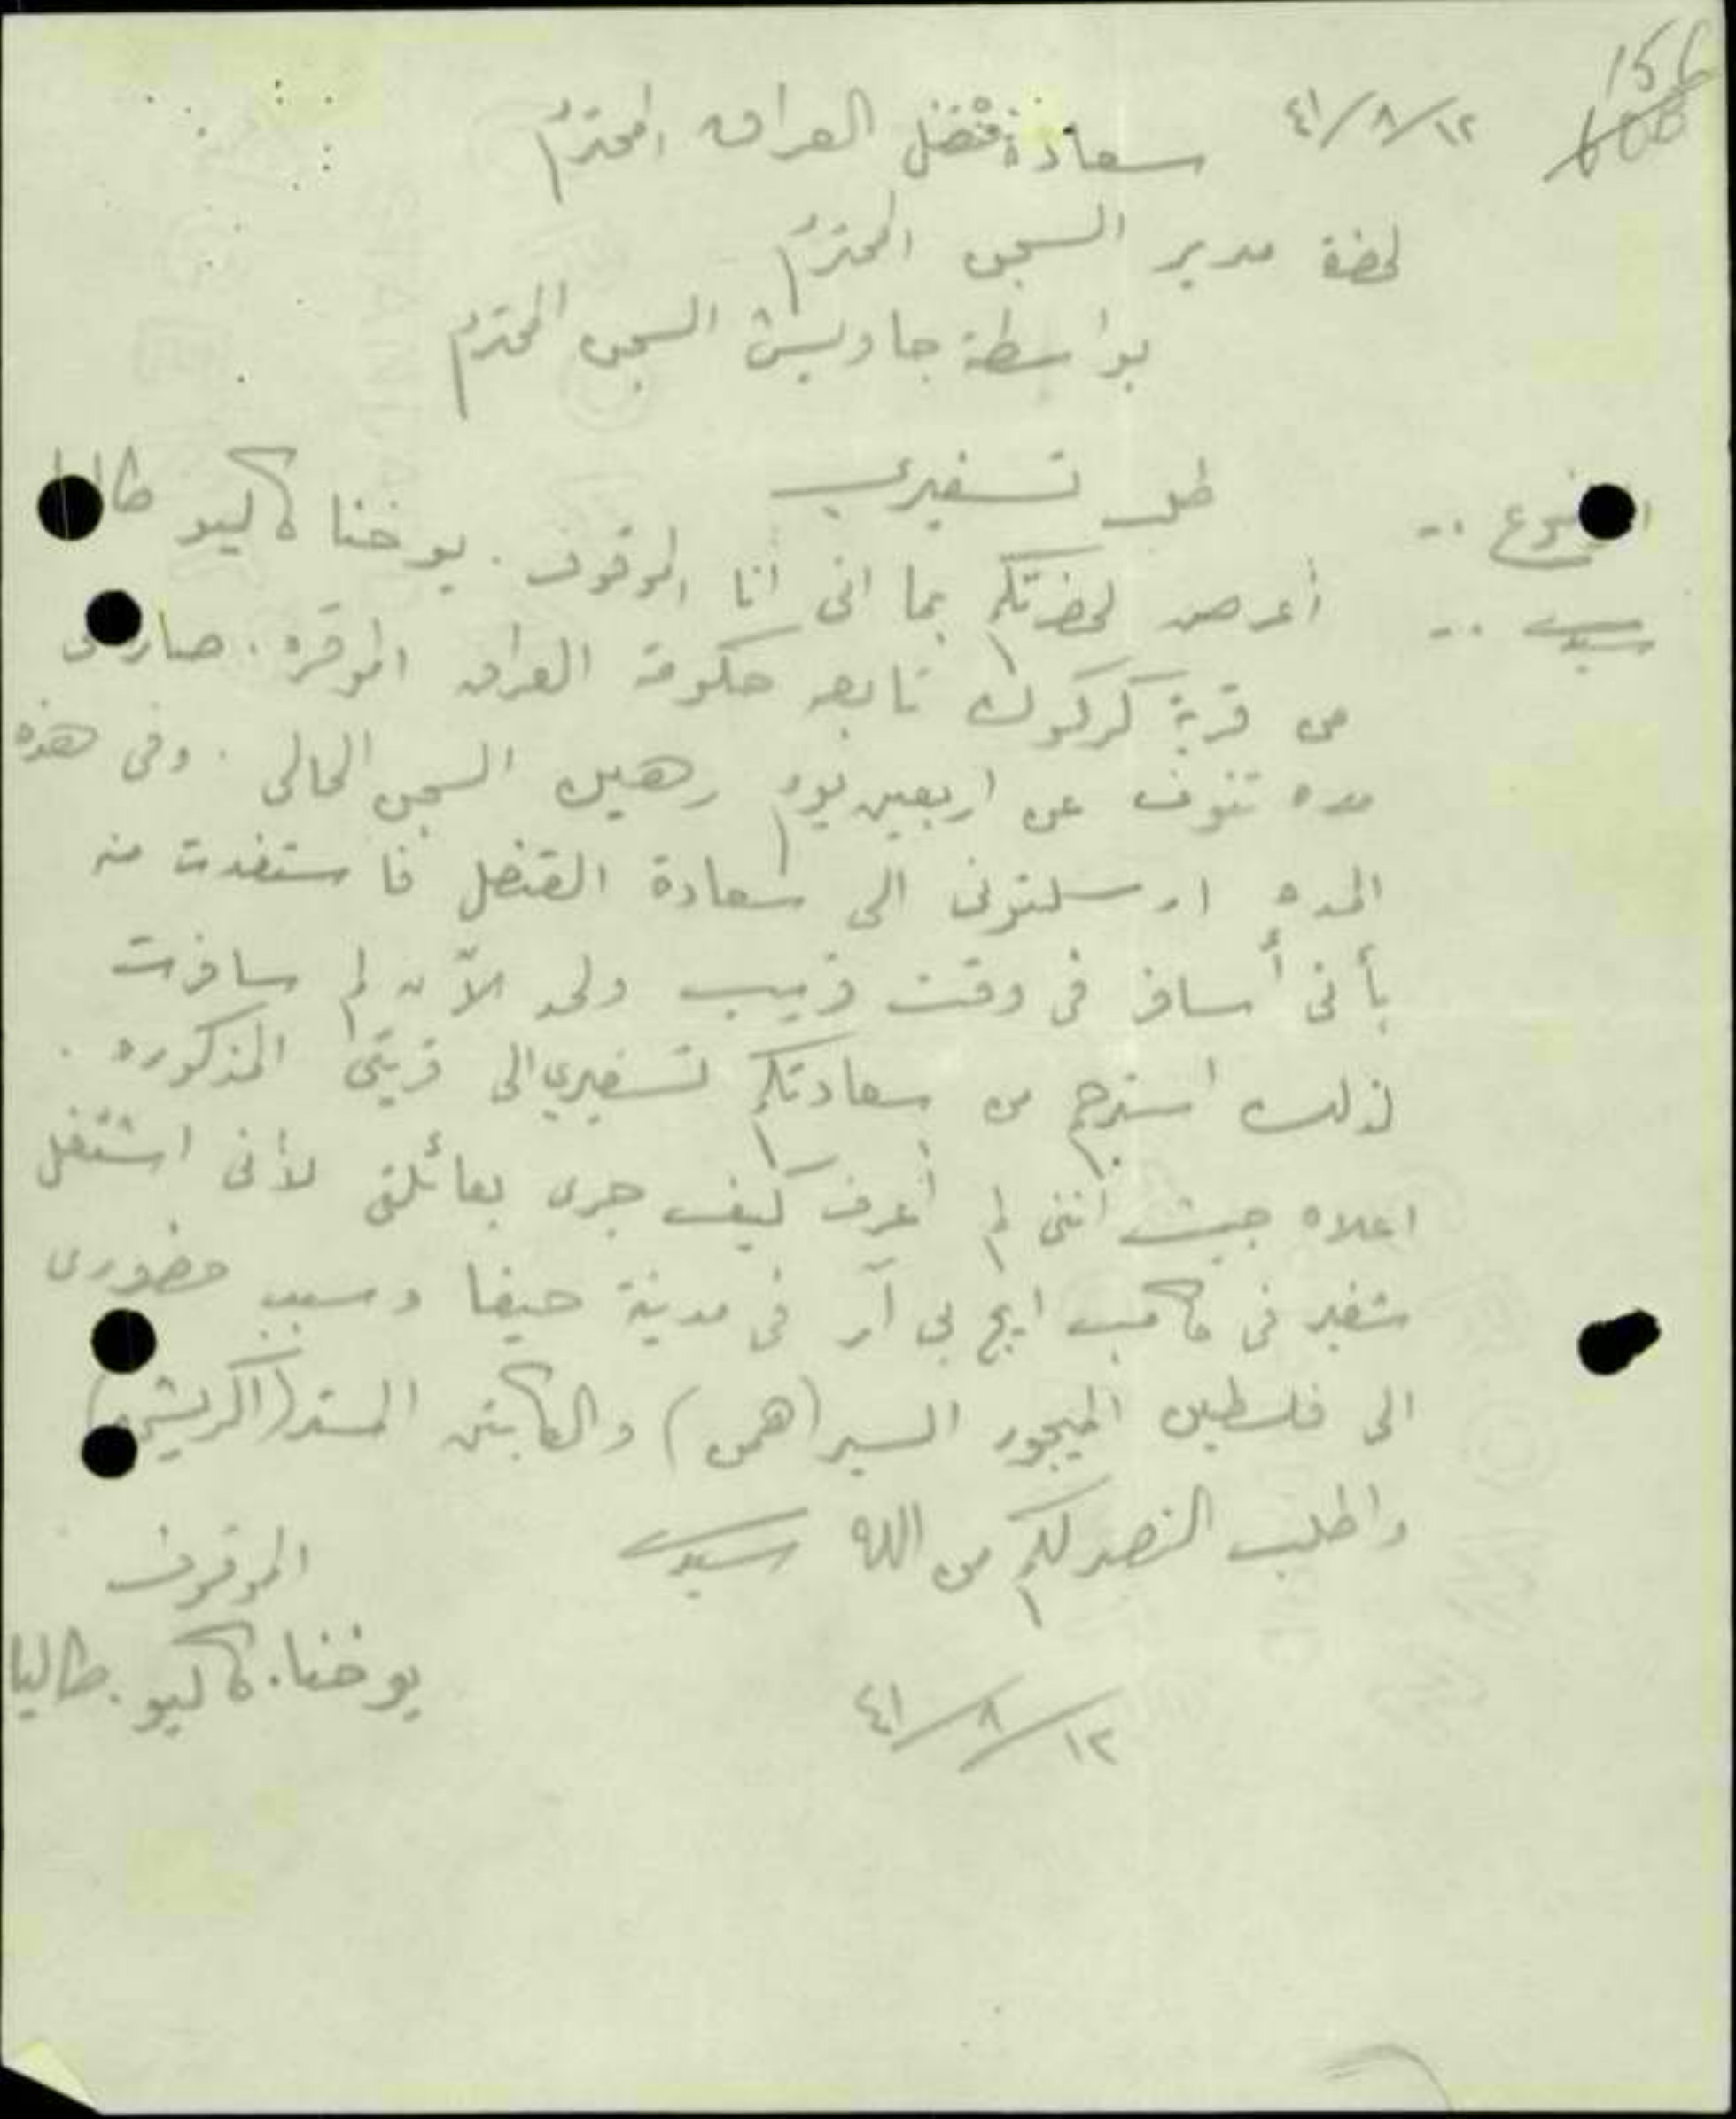 156
600
١٢/٨/٤١ سعادة قنضل العراق المحترم
لحضة مدير السجن المحترم
بواسطة جاويش السجن المحترم
طلب تسفيري
سيدي .. أعرض لحضرتكم بما انى أنا الموقوف . يوخنا كاليو
من قرية كركوك تابعه حكومة العراق الموقره . صار لى
مده تنوف عن اربعين يوم رهين السجن الحالى . وفى هذه
المده ارسلتونى الى سعادة القنضل فاستفدت منه
بأنى أسافر فى وقت قريب ولحد الآن لم سافرت
لذلك استرحم من سعادتكم تسفيري الى قريتى المذكوره .
اعلاه حيث أننى لم أعرف كيف جرى بعائلتى لأنى اشتغل
شغير فى كامب ايج بى آر فى مدينة حيفا وسبب حضورى
الى فلسطين الميجور السير (همى) والكابتن المستر (
واطلب النصر لكم من الله سيدي
الموقوف
يوخنا . كاليو . طاليا
١٢/٨/٤١